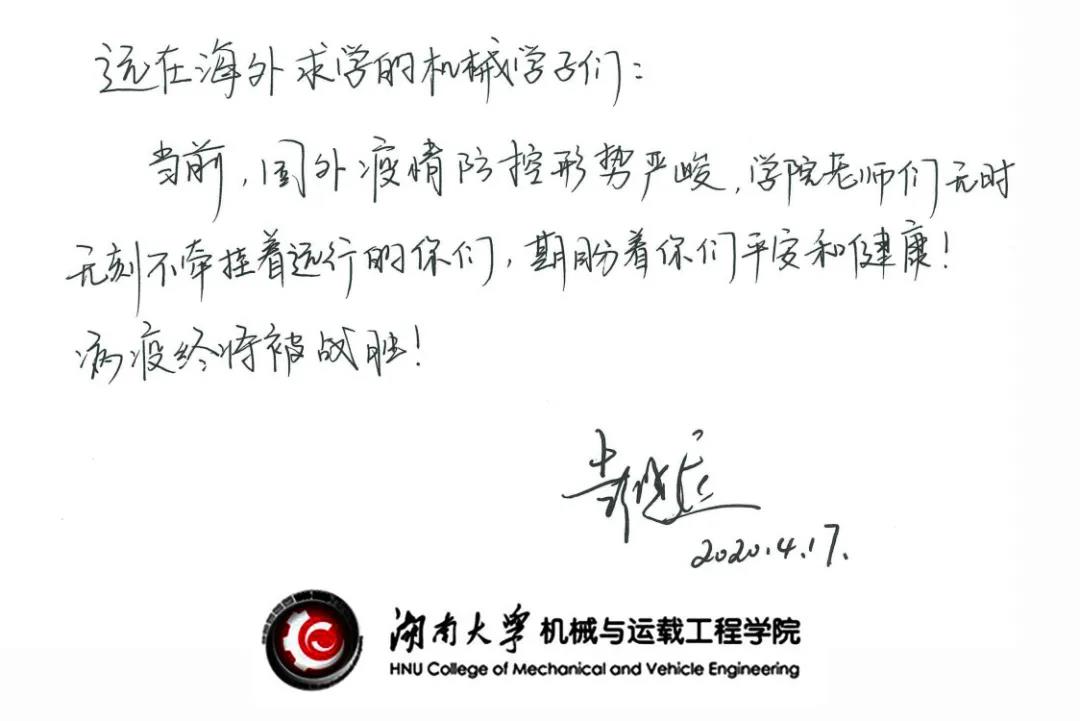 远在海外求学的机械学子们：
当前，国外疫情防控形势严峻，学院老师们无时
无刻不牵挂着远行的你们，期盼着你们平安和健康！
病疫终将被战胜！
2020.4.17.
湖南大学 机械与运载工程学院
HNU College of Mechanical and Vehicle Engineering